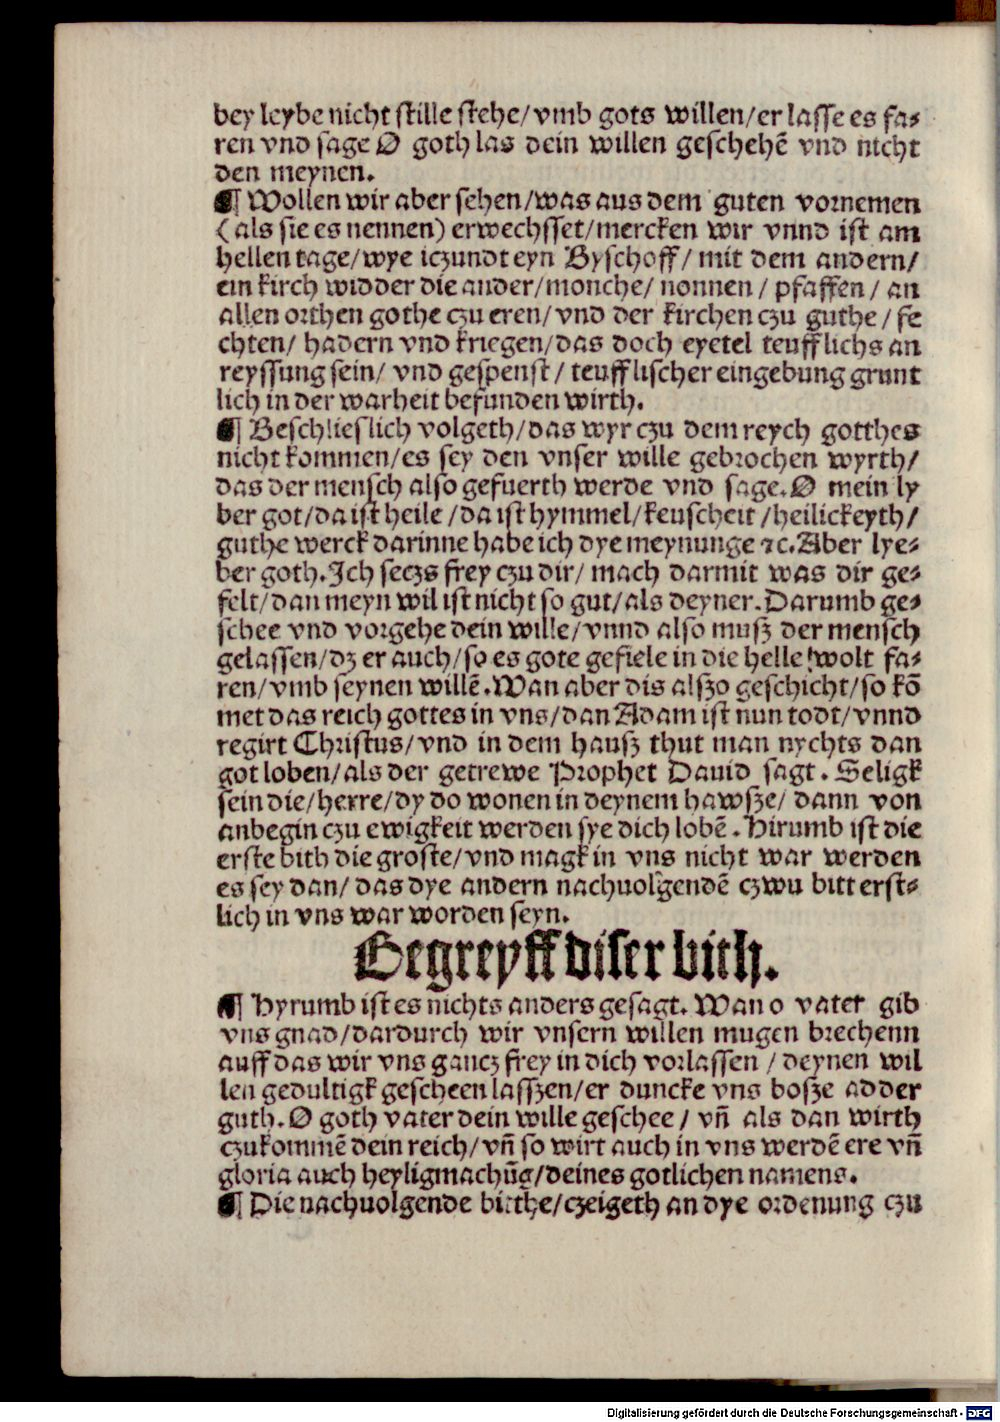 bey leybe nicht stille stehe/ vmb gots willen/ er lasse es fa⸗
ren vnd sage O goth las dein willen geschehẽ vnd nicht
den meynen.
¶ Wollen wir aber sehen/ was aus dem guten vornemen
(als sie es nennen) erwechsset/ mercken wir vnnd ist am
hellen tage/ wye iczundt eyn Byschoff/ mit dem andern/
ein kirch widder die ander/ monche/ nonnen/ pfaffen/ an
allen orthen gothe czu eren/ vnd der kirchen czu guthe/ fe
chten/ hadern vnd kriegen/ das doch eyetel teufflichs an
reyssung sein/ vnd gespenst/ teufflischer eingebung grunt
lich in der warheit befunden wirth.
¶ Beschlieslich volgeth/ das wyr czu dem reych gotthes
nicht kommen/ es sey den vnser wille gebrochen wyrth/
das der mensch also gefuerth werde vnd sage. O mein ly
ber got/ da ist heile/ da ist hymmel/ keuscheit/ heilickeyth/
guthe werck darinne habe ich dye meynunge ⁊c. Aber lye⸗
ber goth. Ich seczs frey czu dir/ mach darmit was dir ge⸗
felt/ dan meyn wil ist nicht so gut/ als deyner. Darumb ge⸗
schee vnd vorgehe dein wille/ vnnd also musz der mensch
gelassen/ dz er auch/ so es gote gefiele in die helle wolt fa⸗
ren/ vmb seynen willẽ. Wan aber dis alszo geschicht/ so kõ
met das reich gottes in vns/ dan Adam ist nun todt/ vnnd
regirt Christus/ vnd in dem hausz thut man nychts dan
got loben/ als der getrewe Prophet Dauid sagt. Seligk
sein die/ herre/ dy do wonen in deynem hawsze/ dann von
anbegin czu ewigkeit werden sye dich lobẽ. Hirumb ist die
erste bith die groste/ vnd magk in vns nicht war werden
es sey dan/ das dye andern nachuolgendẽ czwu bitt erst⸗
lich in vns war worden seyn.
Begreyff diser bith.
¶ Hyrumb ist es nichts anders gesagt. Wan o vater gib
vns gnad/ dardurch wir vnsern willen mugen brechenn
auff das wir vns gancz frey in dich vorlassen/ deynen wil
len gedultigk gescheen lasszen/ er duncke vns bosze adder
guth. O goth vater dein wille geschee/ vñ als dan wirth
czukommẽ dein reich/ vñ so wirt auch in vns werdẽ ere vñ
gloria auch heyligmachũg/ deines gotlichen namens.
¶ Die nachuolgende bitthe/ czeigeth an dye ordenung czu
Digitalisierung gefördert durch die Deutsche Forschungsgemeinschaft - DFG